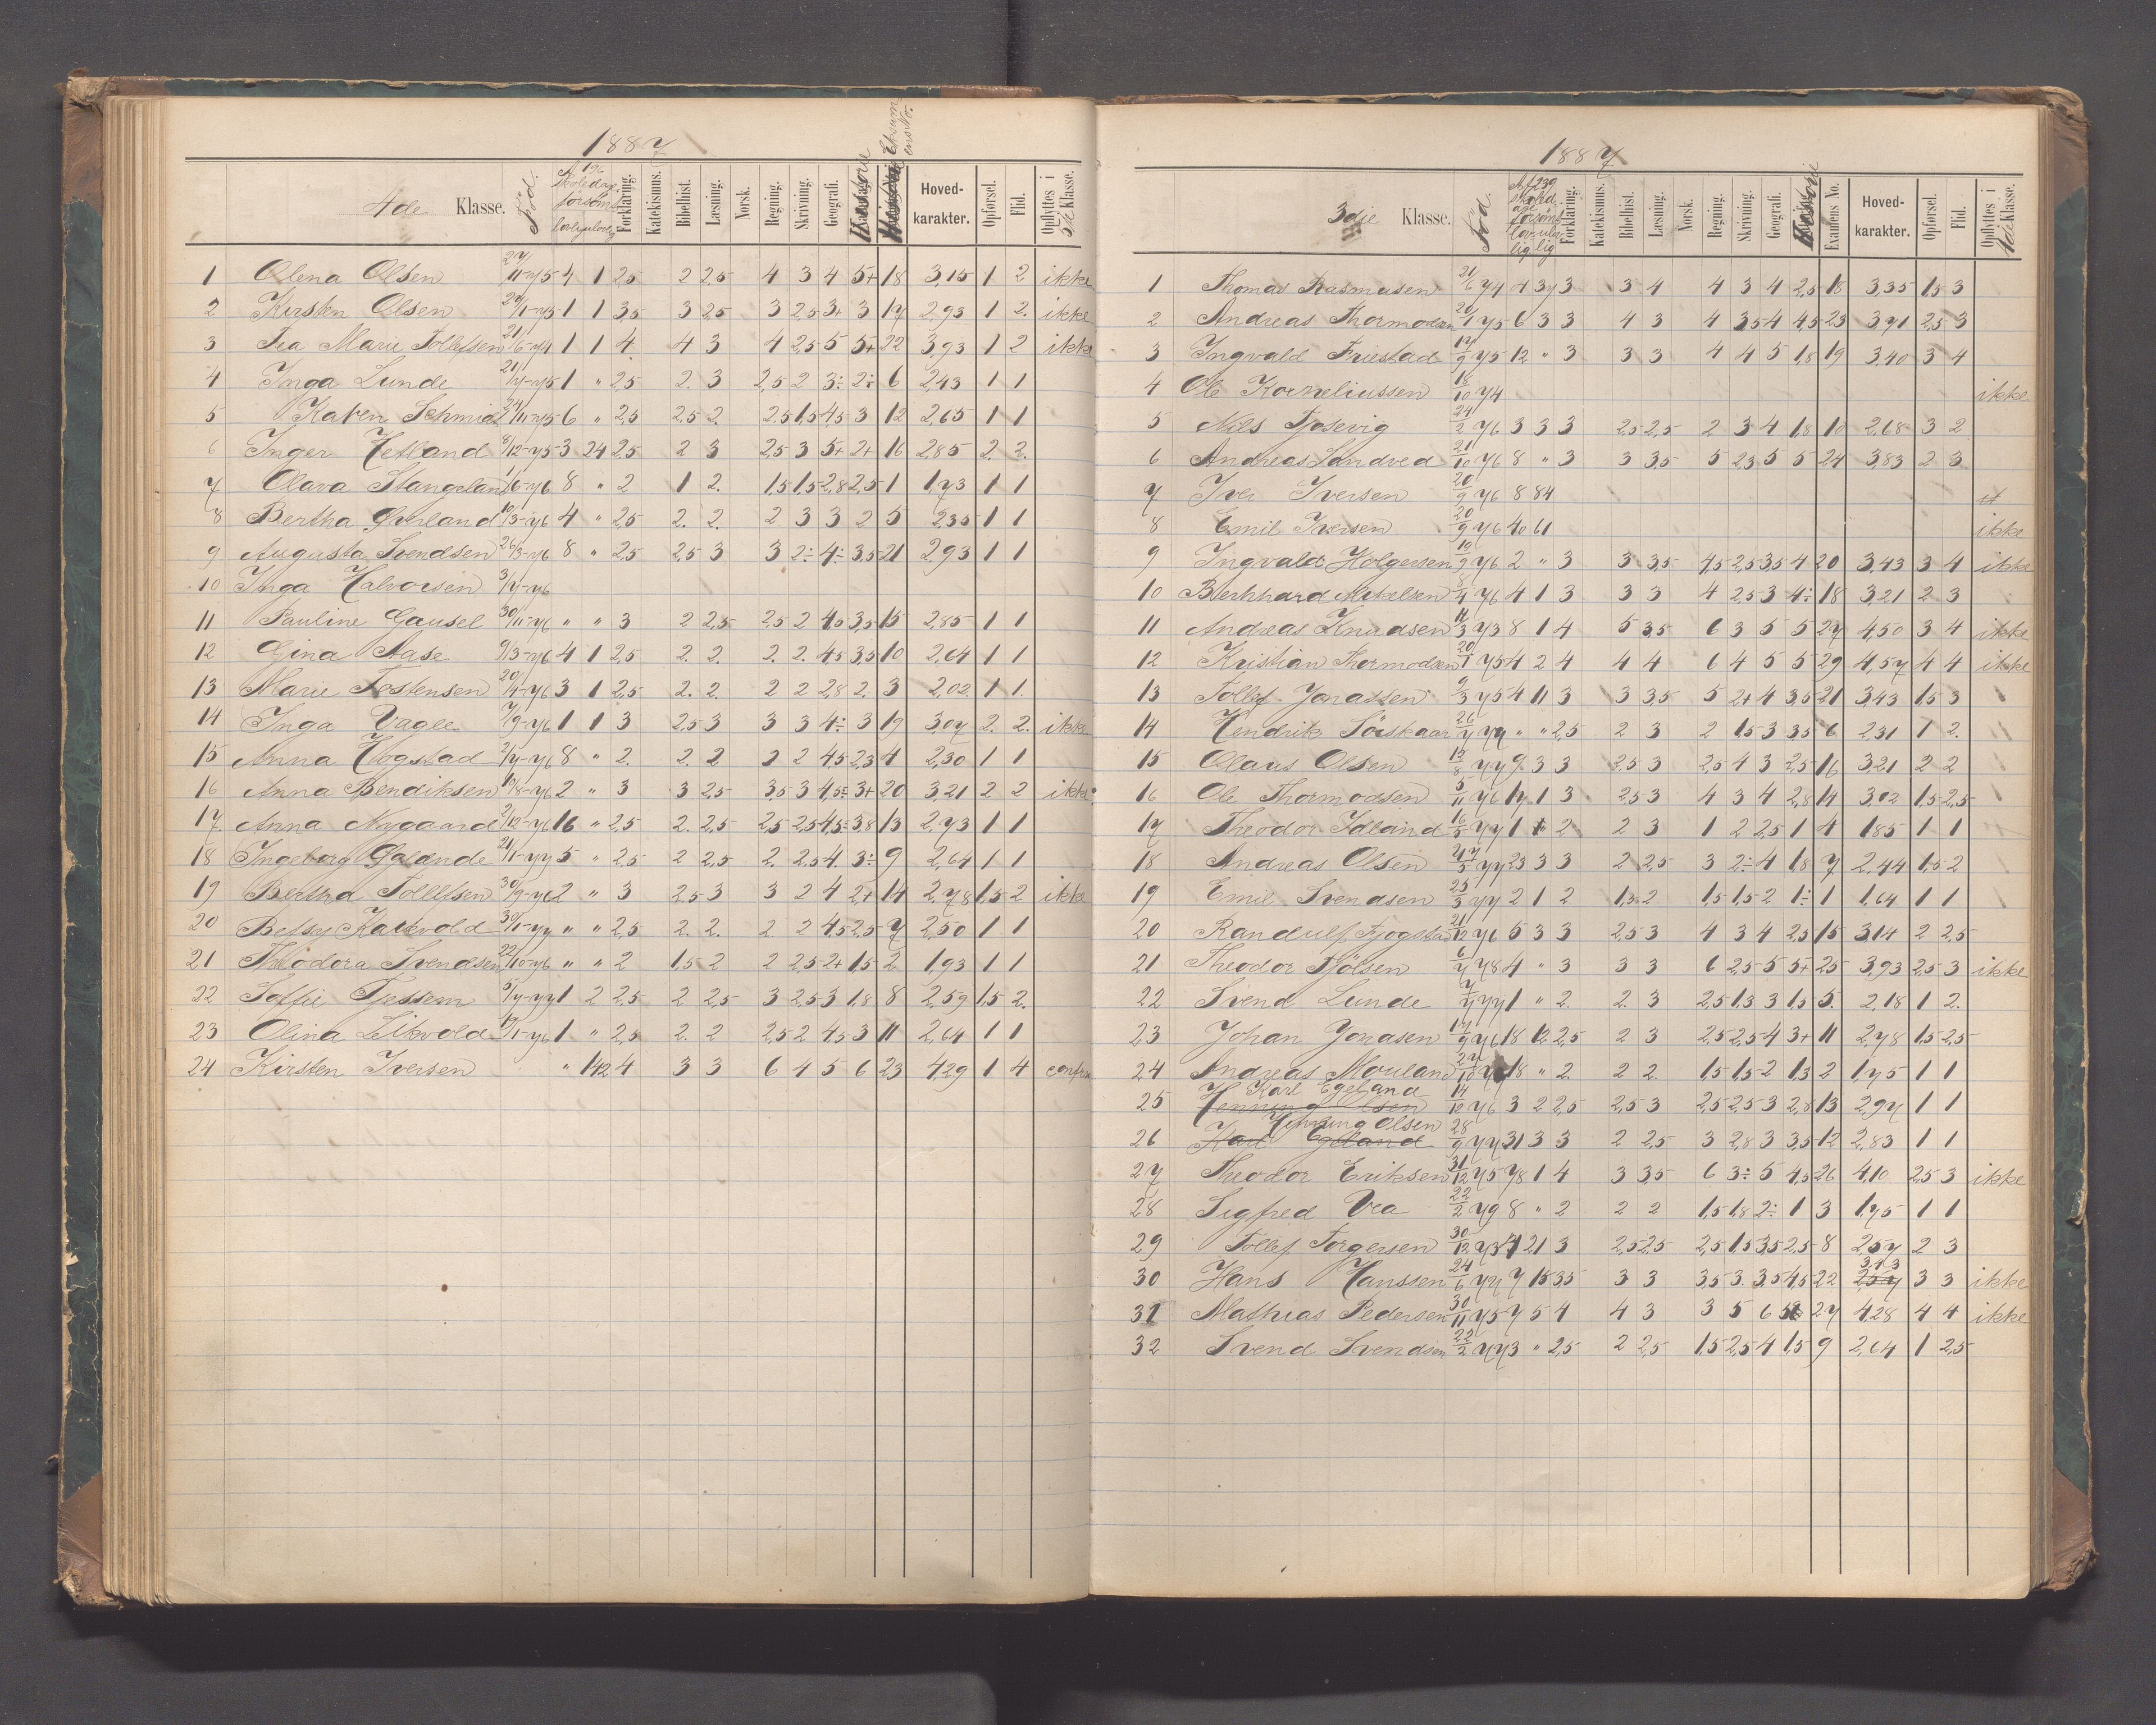 1887
4de Klasse. Född. Af 196 skoledage forsømt lovlig ulovlig Forklaring. Katekismus. Bibelhist. Læsning. Norsk. Regning. Skrivning. Geografi. Historie Examens No. Hoved-karakter. Opførsel. Flid. Opflyttes i 5te Klasse.
1 Olena Olsen 27/11-75 4 1 2,5 2 2,5 4 3 4 5+ 18 3,15 1 2 ikke
2 Kirsten Olsen 29/1-75 1 1 3,5 3 2,5 3 2,5 3+ 3 17 2,93 1 2. ikke
3 Tea Marie Tollefsen 21/6-74 1 1 4 4 3 4 2,5 5 5+ 22 3,93 1 2 ikke
4 Inga Lunde 21/7-75 1 " 2,5 2. 3 2,5 2 3÷ 2÷ 6 2,43 1 1
5 Karen Schmidt 24/11-75 6 " 2,5 2,5 2. 2.5 1,5 4,5 3 12 2,65 1 1
6 Inger Hetland 8/12-75 3 24 2,5 2 3 2,5 3 5+ 2+ 16 2,85 2. 2.
7 Olava Stangeland 1/6-76 8 " 2 1 2. 1,5 1,5 2,8 2,5 1 1,73 1 1
8 Bertha Gverland 10/3-76 4 " 2,5 2. 2. 2 3 3 2 5 2,35 1 1
9 Augusta Svendsen 26/3-76 8 " 2,5 2,5 3 3 2÷ 4÷ 3,5 21 2,93 1 1
10 Inga Halvorsen 3/7-76
11 Pauline Gausel 30/11-76 " " 3 2 2,5 2,5 2 4,5 3,5 15 2,85 1 1
12 Gina Aase 9/3-76 4 1 2,5 2. 2. 2. 2. 4,5 3,5 10 2,64 1 1
13 Marie Testensen 20/4-76 3 1 2,5 2. 2. 2 2 2,8 2. 3 2,02 1 1.
14 Inga Vagle 7/9-76 1 1 3 2,5 3 3 3 4÷ 3 19 3,07 2. 2. ikke
15 Anna Hogstad 2/7-76 8 " 2. 2. 2 2 2 4,5 2,3 4 2,30 1 1
16 Anna Bendiksen 10/8-76 2 " 3 3 2,5 3,5 3 4,5÷ 3+ 20 3,21 2 2 ikke
17. Anna Nygaard 2/12-76 16 " 2,5 2. 2,5 2,5 2,5 4,5÷ 3,8 13 2,73 1 1
18 Ingeborg Galande 21/1-77 5 " 2,5 2 2,5 2. 2.5 4. 3÷ 9 2,64 1 1
19 Bertha Tollefsen 30/9-76 2 " 3 2,5 3 3 2 4 2,+ 14 2,78 1,5 2 ikke
20 Betsy Kalkvold 30/1-77 " " 2,5 2. 2. 2 2 4,5 2,5 7 2,50 1 1
21 Theodora Svendsen 22/10-76 " " 2 1,5 2 2 2,5 2+ 1,5 2 1,93 1 1
22 Soffie Tjessem 5/7-77 1 2 2,5 2 2,5 3 2,5 3 1,8 8 2,59 1,5 2.
23 Olina Litkvold 19/1-76 1 " 2,5 2. 2 2,5 2 4,5 3 11 2,64 1 1
24 Kirsten Iversen " 142 4 3 3 6 4 5 6 23 4,29 1 4
1887
3die Klasse. Född. Af 239 skoledage forsømt lovlig ulovlig Forklaring. Katekismus. Bibelhist. Læsning. Norsk. Regning. Skrivning. Geografi. Historie Examens No. Hoved-karakter. Opførsel. Flid. Opflyttes i 4de Klasse.
1 Thomas Rasmusen 21/6 74 1 37 3 3 4 4 3 4 2,5 18 3,35 1,5 3
2 Andreas Thormodsen 20/1 75 6 3 3 4 3 4 3,5 4 4,5 23 3,71 2,5 3
3 Ingvald Friestad 14/9 75 12 " 3 3 3 4 4 5 1,8 19 3,40 3 4
4 Ole Korneliussen 18/10 74 ikke
5 Nils Tjosevig 24/2 76 3 3 3 2,5 2,5 2 3 4 1,8 10 2,68 3 2
6 Andreas Sandved 21/10 76 8 " 3 3 3,5 5 2,3 5 5 24 3,83 2 3
7 Iver Iversen 20/9 76 8 84
8 Emil Iversen 20/9 76 40 61 ikke
9 Ingvald Holgersen 10/9 76 2 " 3 3 3,5 4,5 2,5 3,5 4 20 3,43 3 4 ikke
10 Bernhard Mikelsen 8/4 76 4 1 3 3 3 4 2,5 3 4÷ 18 3,21 2 3
11 Andreas Knudsen 11/3 73 8 1 4 5 3,5 6 3 5 5 27 4,50 3 4 ikke
12 Kristian Thormodsen 20/1 75 4 2 4 4 4 6 4 5 5 29 4,57 4 4 ikke
13 Tollef Jonassen 9/3 75 4 11 3 3 3,5 5 2+ 4 3,5 21 3,43 1,5 3
14 Hendrik Sörskaar 26/7 77 " " 2,5 2 3 2 1,5 3 3,5 6 2,31 1 2.
15 Olaus Olsen 12/8 77 9 3 3 2,5 3 2,5 4 3 2,5 16 3,21 2 2
16 Ole Thormodsen 5/11 76 17 1 3 2,5 3 4 3 4 2,8 14 3,02 1,5 2,5
17 Theodor Idland 16/5 77 1 1 2 2 3 1 2 2,5 1 4 1,85 1 1
18 Andreas Olsen 27/5 77 23 3 3 2 2,5 3 2÷ 4 1,8 7 2,44 1,5 2
19 Emil Svendsen 25/3 77 2 1 2 1,3 2 1,5 1,5 2 1÷ 1 1,64 1 1
20 Randulf Fjogstad 21/12 76 5 3 3 2,5 3 4 3 4 2,5 15 3,14 2 2,5
21 Theodor Fjölsen 6/7 78 4 " 3 3 3 6 2,5 5 5+ 25 3,93 2,5 3 ikke
22 Svend Lunde 7/7 77 1 " 2. 2. 3 2,5 1,3 3 1,5 5. 2,18 1 2.
23 Johan Jonasen 17/9 76 18 12 2,5 2 3 2,5 2,5 4 3+ 11 2,78 1,5 2,5
24 Andreas Mouland 27/10 18 " 2. 2 2. 1,5 1,5 2 1,3 2 1,75 1 1
25 Henning Olsen Karl Egeland 14/12 76 3 2 2,5 2,5 3 2,5 2,5 3 2,8 13 2,97 1 1
26 Karl Egeland Henning Olsen 28/9 77 31 3 3 2 2,5 3 2,8 3 3,5 12 2,83 1 1
27 Theodor Eriksen 31/12 75 78 1 4 3 3,5 6 3÷ 5 4,5 26 4,10 2,5 3 ikke
28 Sigfred Vea 22/2 79 8 " 2 2 2 1,5 1,8 2÷ 1 3 1,75 1 1
29 Tollef Torgersen 30/12 21 3 2,5 2,5 2,5 1,5 3,5 2,5 8 2,57 2 3
30 Hans Hanssen 24/6 7 15 3,5 3 3 3,5 3 3,5 4,5 22 2,57 3,43 3 3 ikke
31 Mathias Pedersen 30/11 75 7 5 4 4 3 3 5 6 27 4,28 4 4 ikke
32 Svend Svendsen 22/2 77 3 " 2,5 2 2,5 1,5 2,5 4 1,5 9 2,64 1 2,5